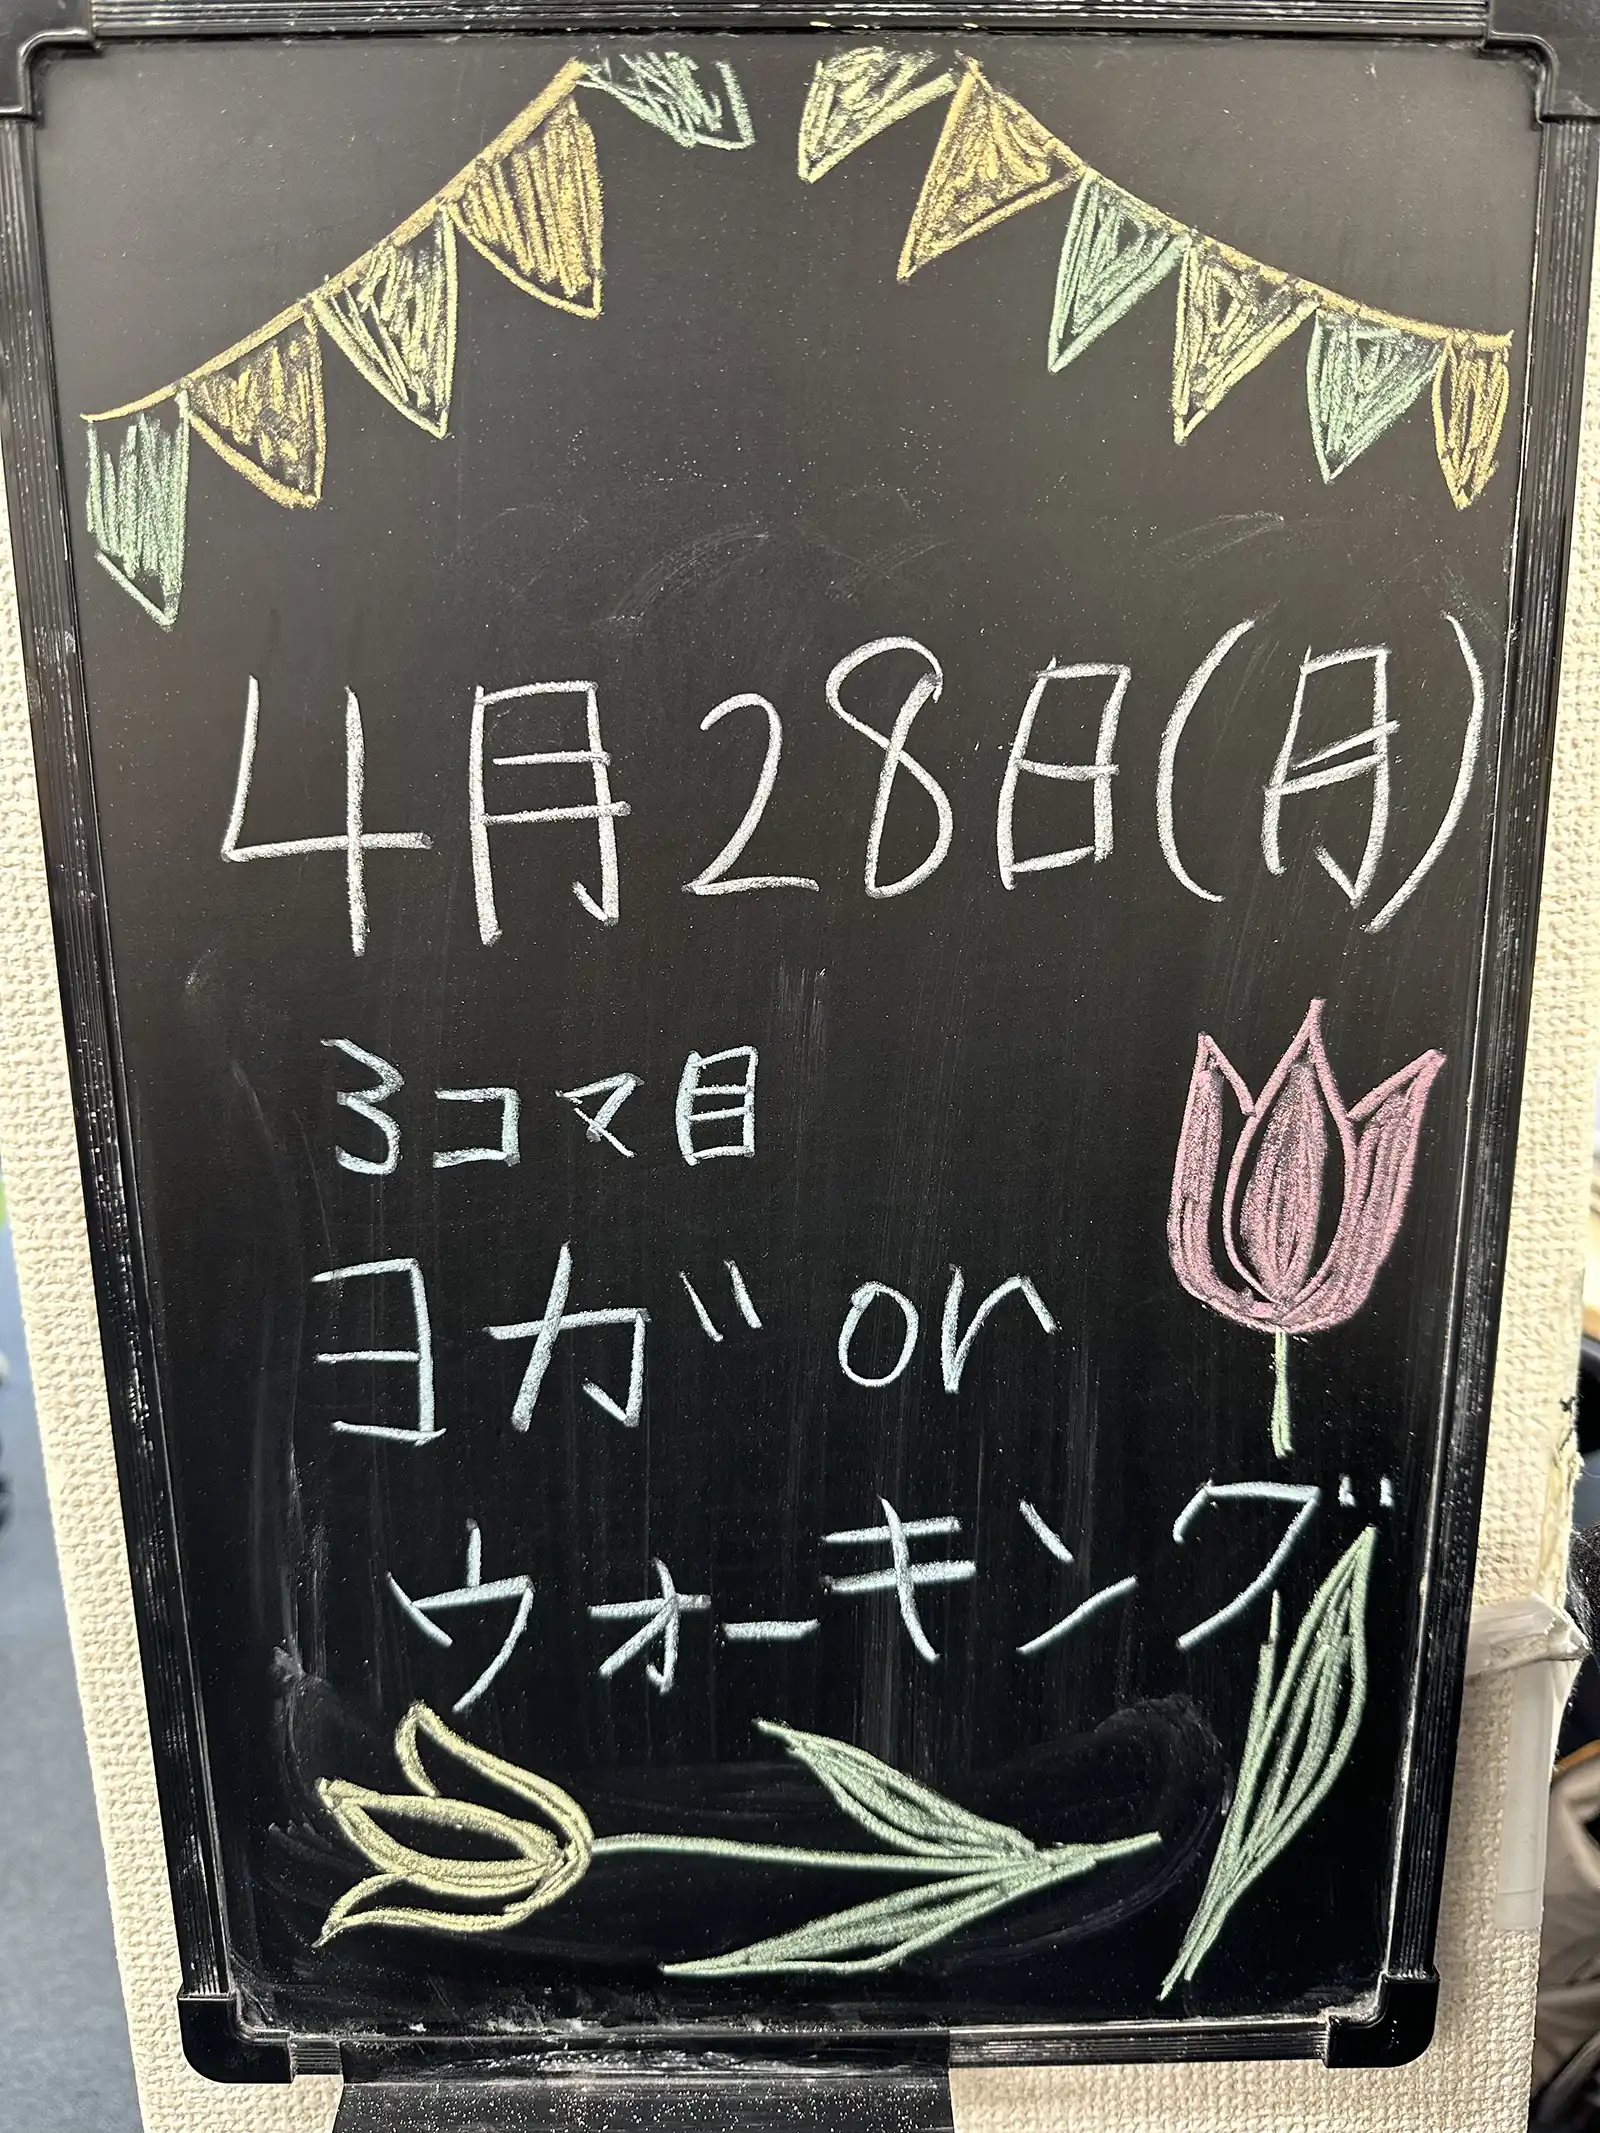 4月28日(月)
3コマ目
ヨガ or
ウォーキング